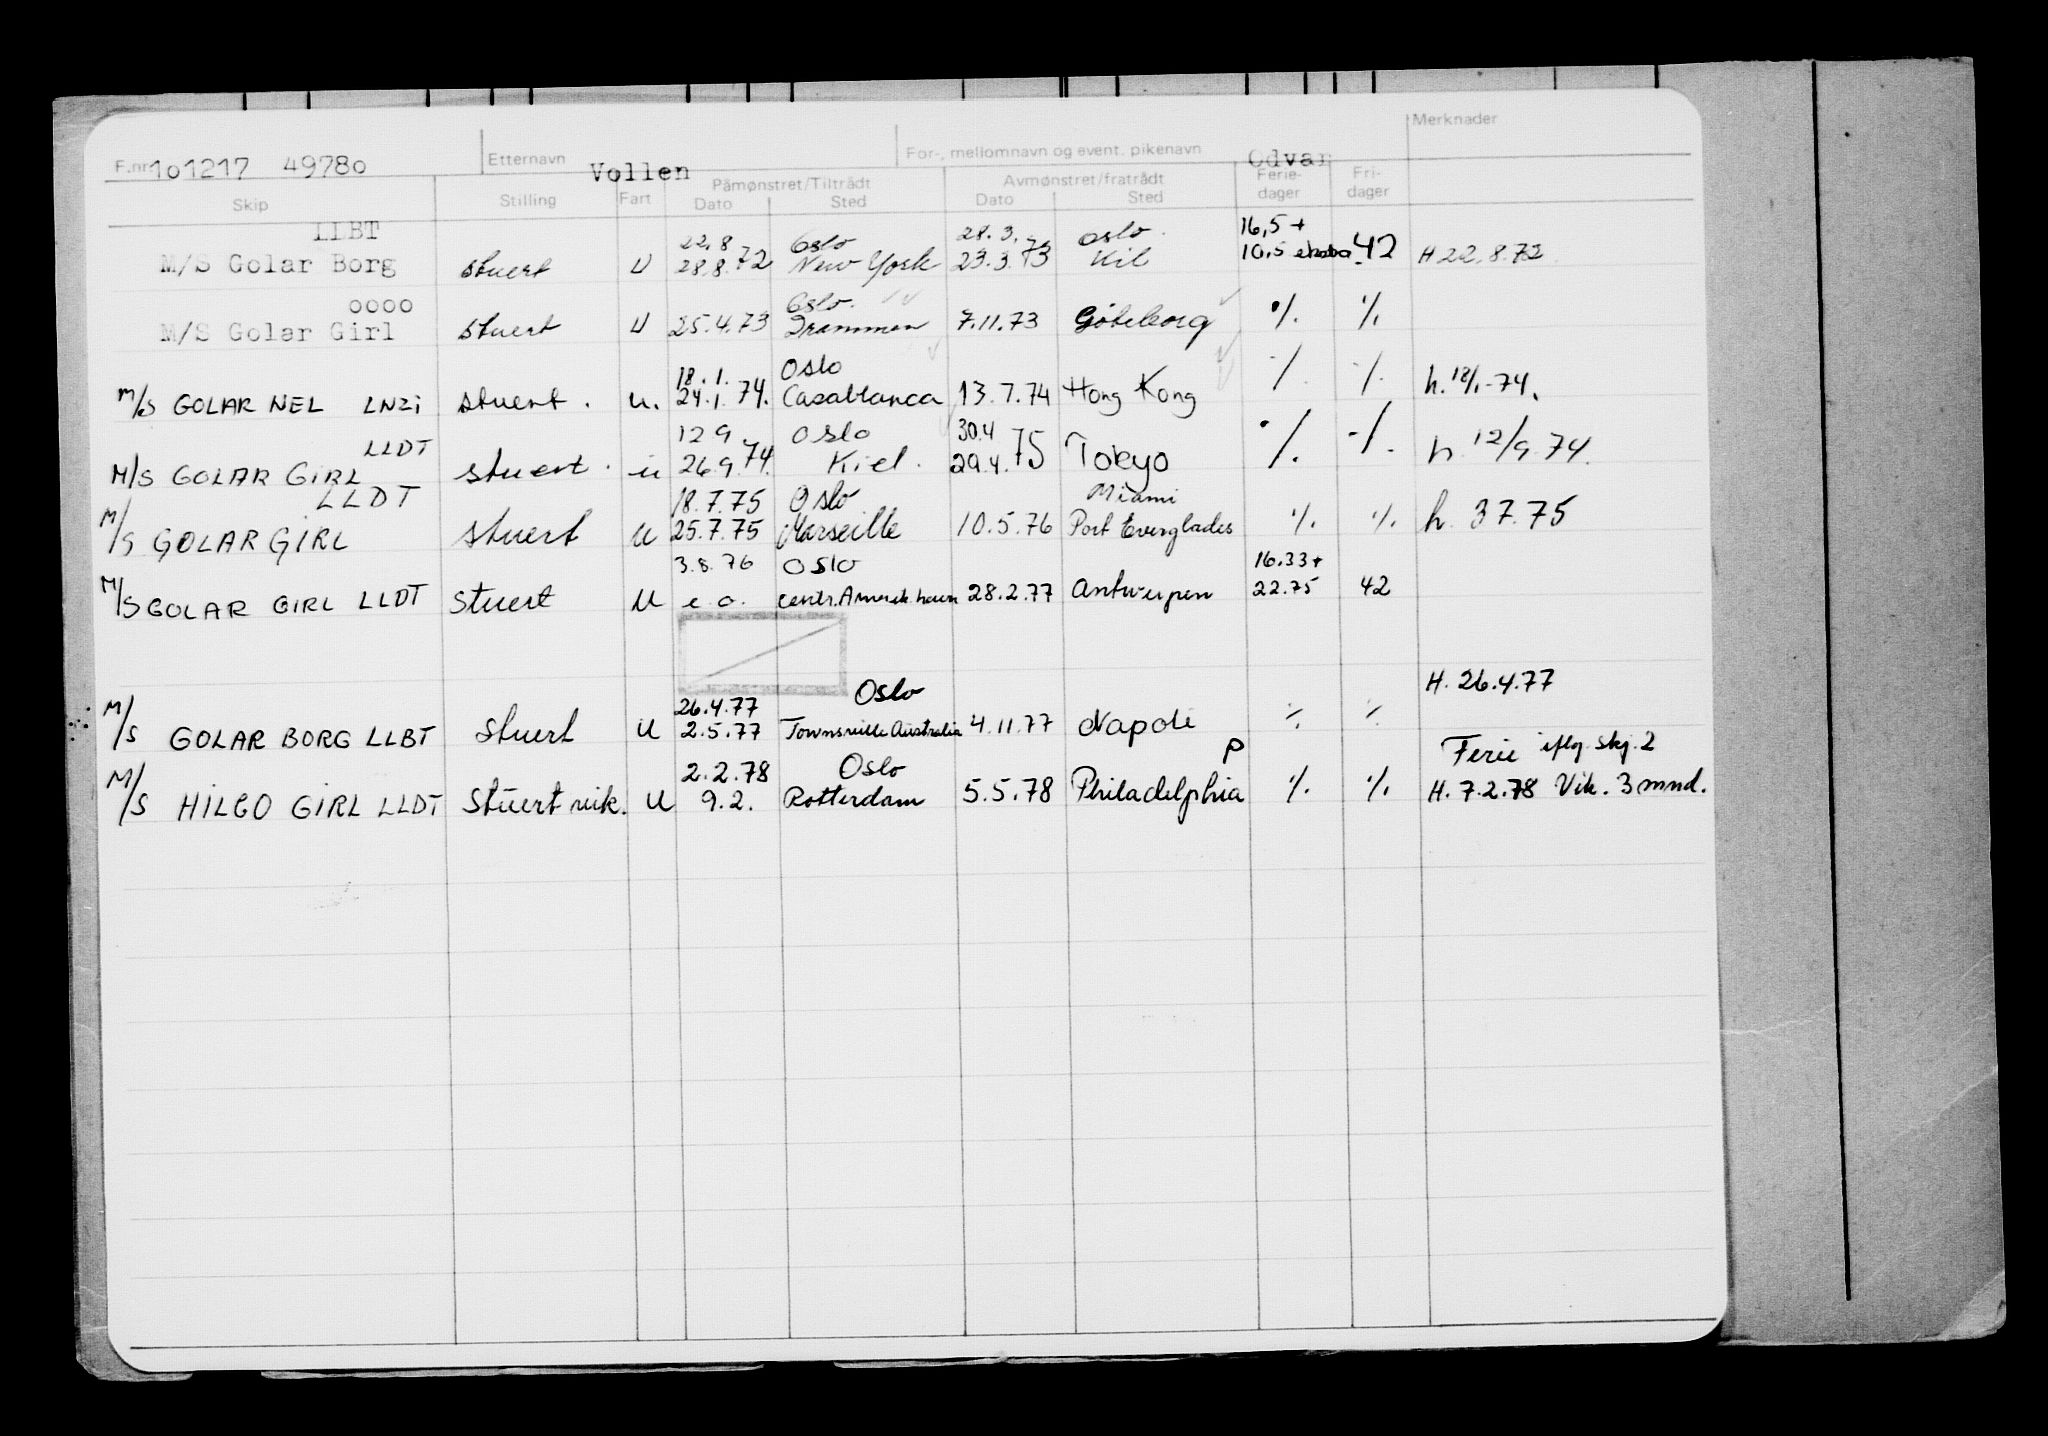 F.nr. 101217 49780 Etternavn Vollen For-, mellomnavn og event. pikenavn Odvar Merknader
Skip Stilling Fart Påmønstret/Tiltrådt Avmønstret/fratrådt Ferie- Fri-
Dato Sted Dato Sted dager dager
LLBT 22.8 Oslo 28.3. Oslo. 16,5 +
M/S Golar Borg stuert U 28.8.72 New York 23.3.73 Kil 10,5 42 H 22.8.72.
oooo Oslo.
M/S Golar Girl stuert U 25.4.73 Drammen 7.11.73 Göteborg % %
18.1. Oslo
M/S GOLAR NEL LNZi stuert. u. 24.1.74. Casablanca 13.7.74 Hong Kong % % h. 18/1-74.
LLDT 12 9 Oslo 30.4
M/S GOLAR GiRL stuert. u 26.9.74. Kiel. 29.4.75 Tokyo % % h. 12/9 74.
LLDT 18.7.75 Oslo Miami
M/S GOLAR GiRL stuert U 25.7.75 Marseille 10.5.76 Port Everglades % % h. 37.75
3.8.76 Oslo 16.33+
M/S GOLAR GIRL LLDT Stuert U e.o. centr.Amerik.havn 28.2.77 Antwerpen 22.75 42
26.4.77 Oslo H. 26.4.77
M/S GOLAR BORG LLBT Stuert U 2.5.77 Townsville Australia 4.11.77 Napoli % %
2.2.78 Oslo P Ferie iflg. skj. 2
M/S HILCO GIRL LLDT Stuert vik. U 9.2. Rotterdam 5.5.78 Philadelphia % % H. 7.2.78 Vik. 3 mnd.